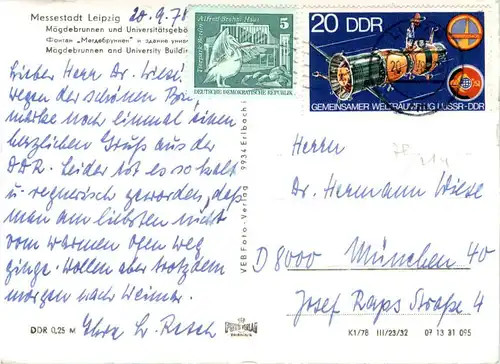 Messestadt Leipzig 20.9.78
Mägdebrunnen und Universitätsgebä
Фонтан „Мегдебруннен" и здание униве
Mägdebrunnen and University Buildin
Lieber Herr Dr. Wiese!
wegen der schönen
marke noch einmal einen
herzlichen Gruß aus der
DDR. Leider ist es so kalt
u. regnerisch geworden, daß
man am liebsten nicht
vom warmen Ofen weg
ginge. Wollen aber trotzdem
morgen nach Weimar.
Ihre
DDR 0,25 M
VEB Foto-Verlag 9934 Erlbach i
Alfred-Brehm-Haus
Tierpark Berlin
5
DEUTSCHE DEMOKRATISCHE REPUBLIK
20 DDR
GEMEINSAMER WELTRAUMFLUG UdSSR-DDR
Herrn
Dr. Hermann Wiese
D 8000 München 40
Josef Raps Straße 4
K1/78 III/23/32 07 13 31 095